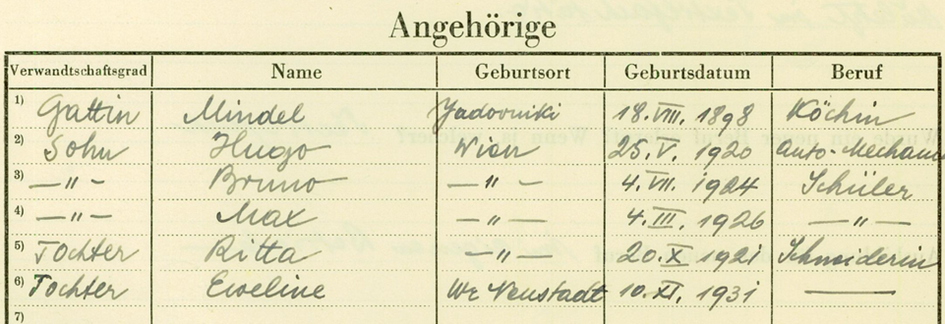 Angehörige
Verwandtschaftsgrad Name Geburtsort Geburtsdatum Beruf
1) Gattin Mindel Jadowniki 18.VIII. 1898 Köchin
2) Sohn Hugo Wien 25.V. 1920 Auto-Mechan
3) — " — Bruno — " — 4.VII. 1924 Schüler
4) — " — Max — " — 4.III. 1926 — " —
5) Tochter Ritta — " — 20.X 1921 Schneiderin
6) Tochter Eweline Wr Neustadt 10.XI. 1931 —
7)